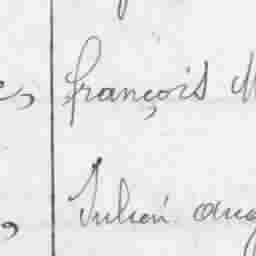 françois M
Julien aug